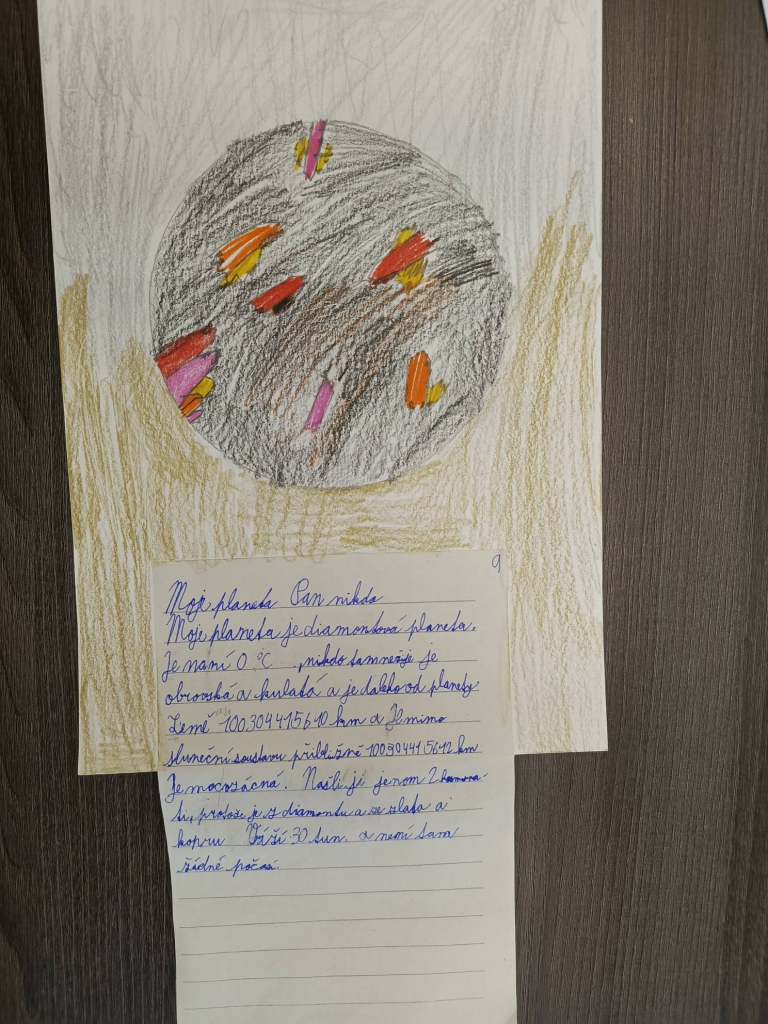 9
Moje planeta Pan nikdo
Moje planeta je diamontová planeta.
Je naní 0 °C , nikdo tam nežije je
obrovská a kulatá a je daleko od planety
Země 100304415610 km a Je mimo
sluneční soustavu přibližně km
Je moc vzácná. Našli ji jenom 2
ti, protože je z diamontu a ze zlata a
kopru Váží 30 tun. a není tam
žádné počasí.